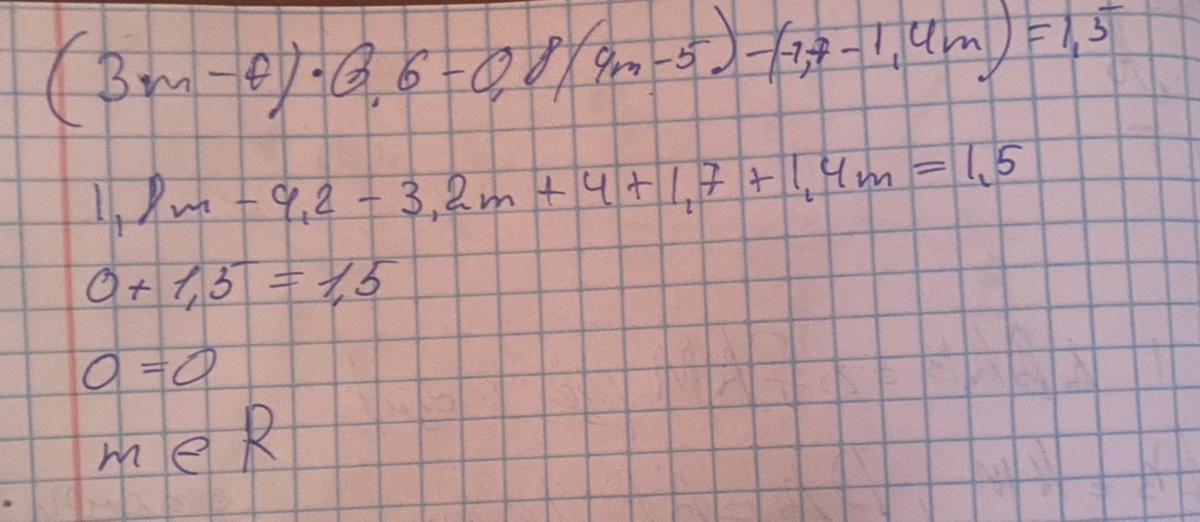 (3m - 7) · 0,6 - 0,8(4m - 5) - (-1,7 - 1,4m) = 1,5
1,8m - 4,2 - 3,2m + 4 + 1,7 + 1,4m = 1,5
0 + 1,5 = 1,5
0 = 0
m ∈ R